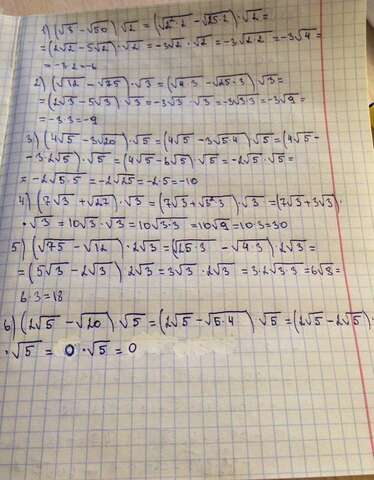 1) (√8 - √50)·√2 = (√2²·2 - √25·2)·√2 =
= (2√2 - 5√2)·√2 = -3√2·√2 = -3√2·2 = -3√4 =
= -3·2 = -6
2) (√12 - √75)·√3 = (√4·3 - √25·3)·√3 =
= (2√3 - 5√3)·√3 = -3√3·√3 = -3√3·3 = -3√9 =
= -3·3 = -9
3) (4√5 - 3√20)·√5 = (4√5 - 3√5·4)·√5 = (4√5 -
- 3·2√5)·√5 = (4√5 - 6√5)·√5 = -2√5·√5 =
= -2√5·5 = -2√25 = -2·5 = -10
4) (7√3 + √27)·√3 = (7√3 + √3²·3)·√3 = (7√3 + 3√3)·
·√3 = 10√3·√3 = 10√3·3 = 10√9 = 10·3 = 30
5) (√75 - √12)·2√3 = (√25·3 - √4·3)·2√3 =
= (5√3 - 2√3)·2√3 = 3√3·2√3 = 3·2√3·3 = 6√9 =
6·3 = 18
6) (2√5 - √20)·√5 = (2√5 - √5·4)·√5 = (2√5 - 2√5)·
·√5 = 0·√5 = 0